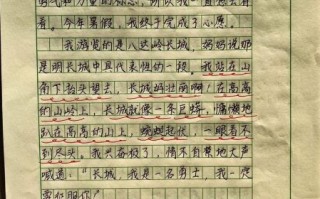 勇气和力量的标志，所以我一直想去看
看。今年暑假，我终于完成了心愿。
我游览的是八达岭长城，妈妈说那
是明长城中具代表性的一段。我站在山
脚下抬头望去，长城屹立而啊！在高高
的山岭上，长城就像一条巨蟒，慵懒地
趴在高高的山上，蜿蜒起伏，一眼看不
到尽头。我兴奋极了，情不自禁地大声
喊道："长城，我是一名勇士，我一定
会征服你！"